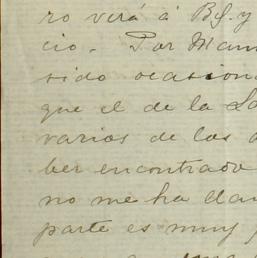 ro verá á Bg. y
cio. Por Mam
sido ocasion
que el de la Sa
varios de los
ber encontrado
no me ha da
parte es muy